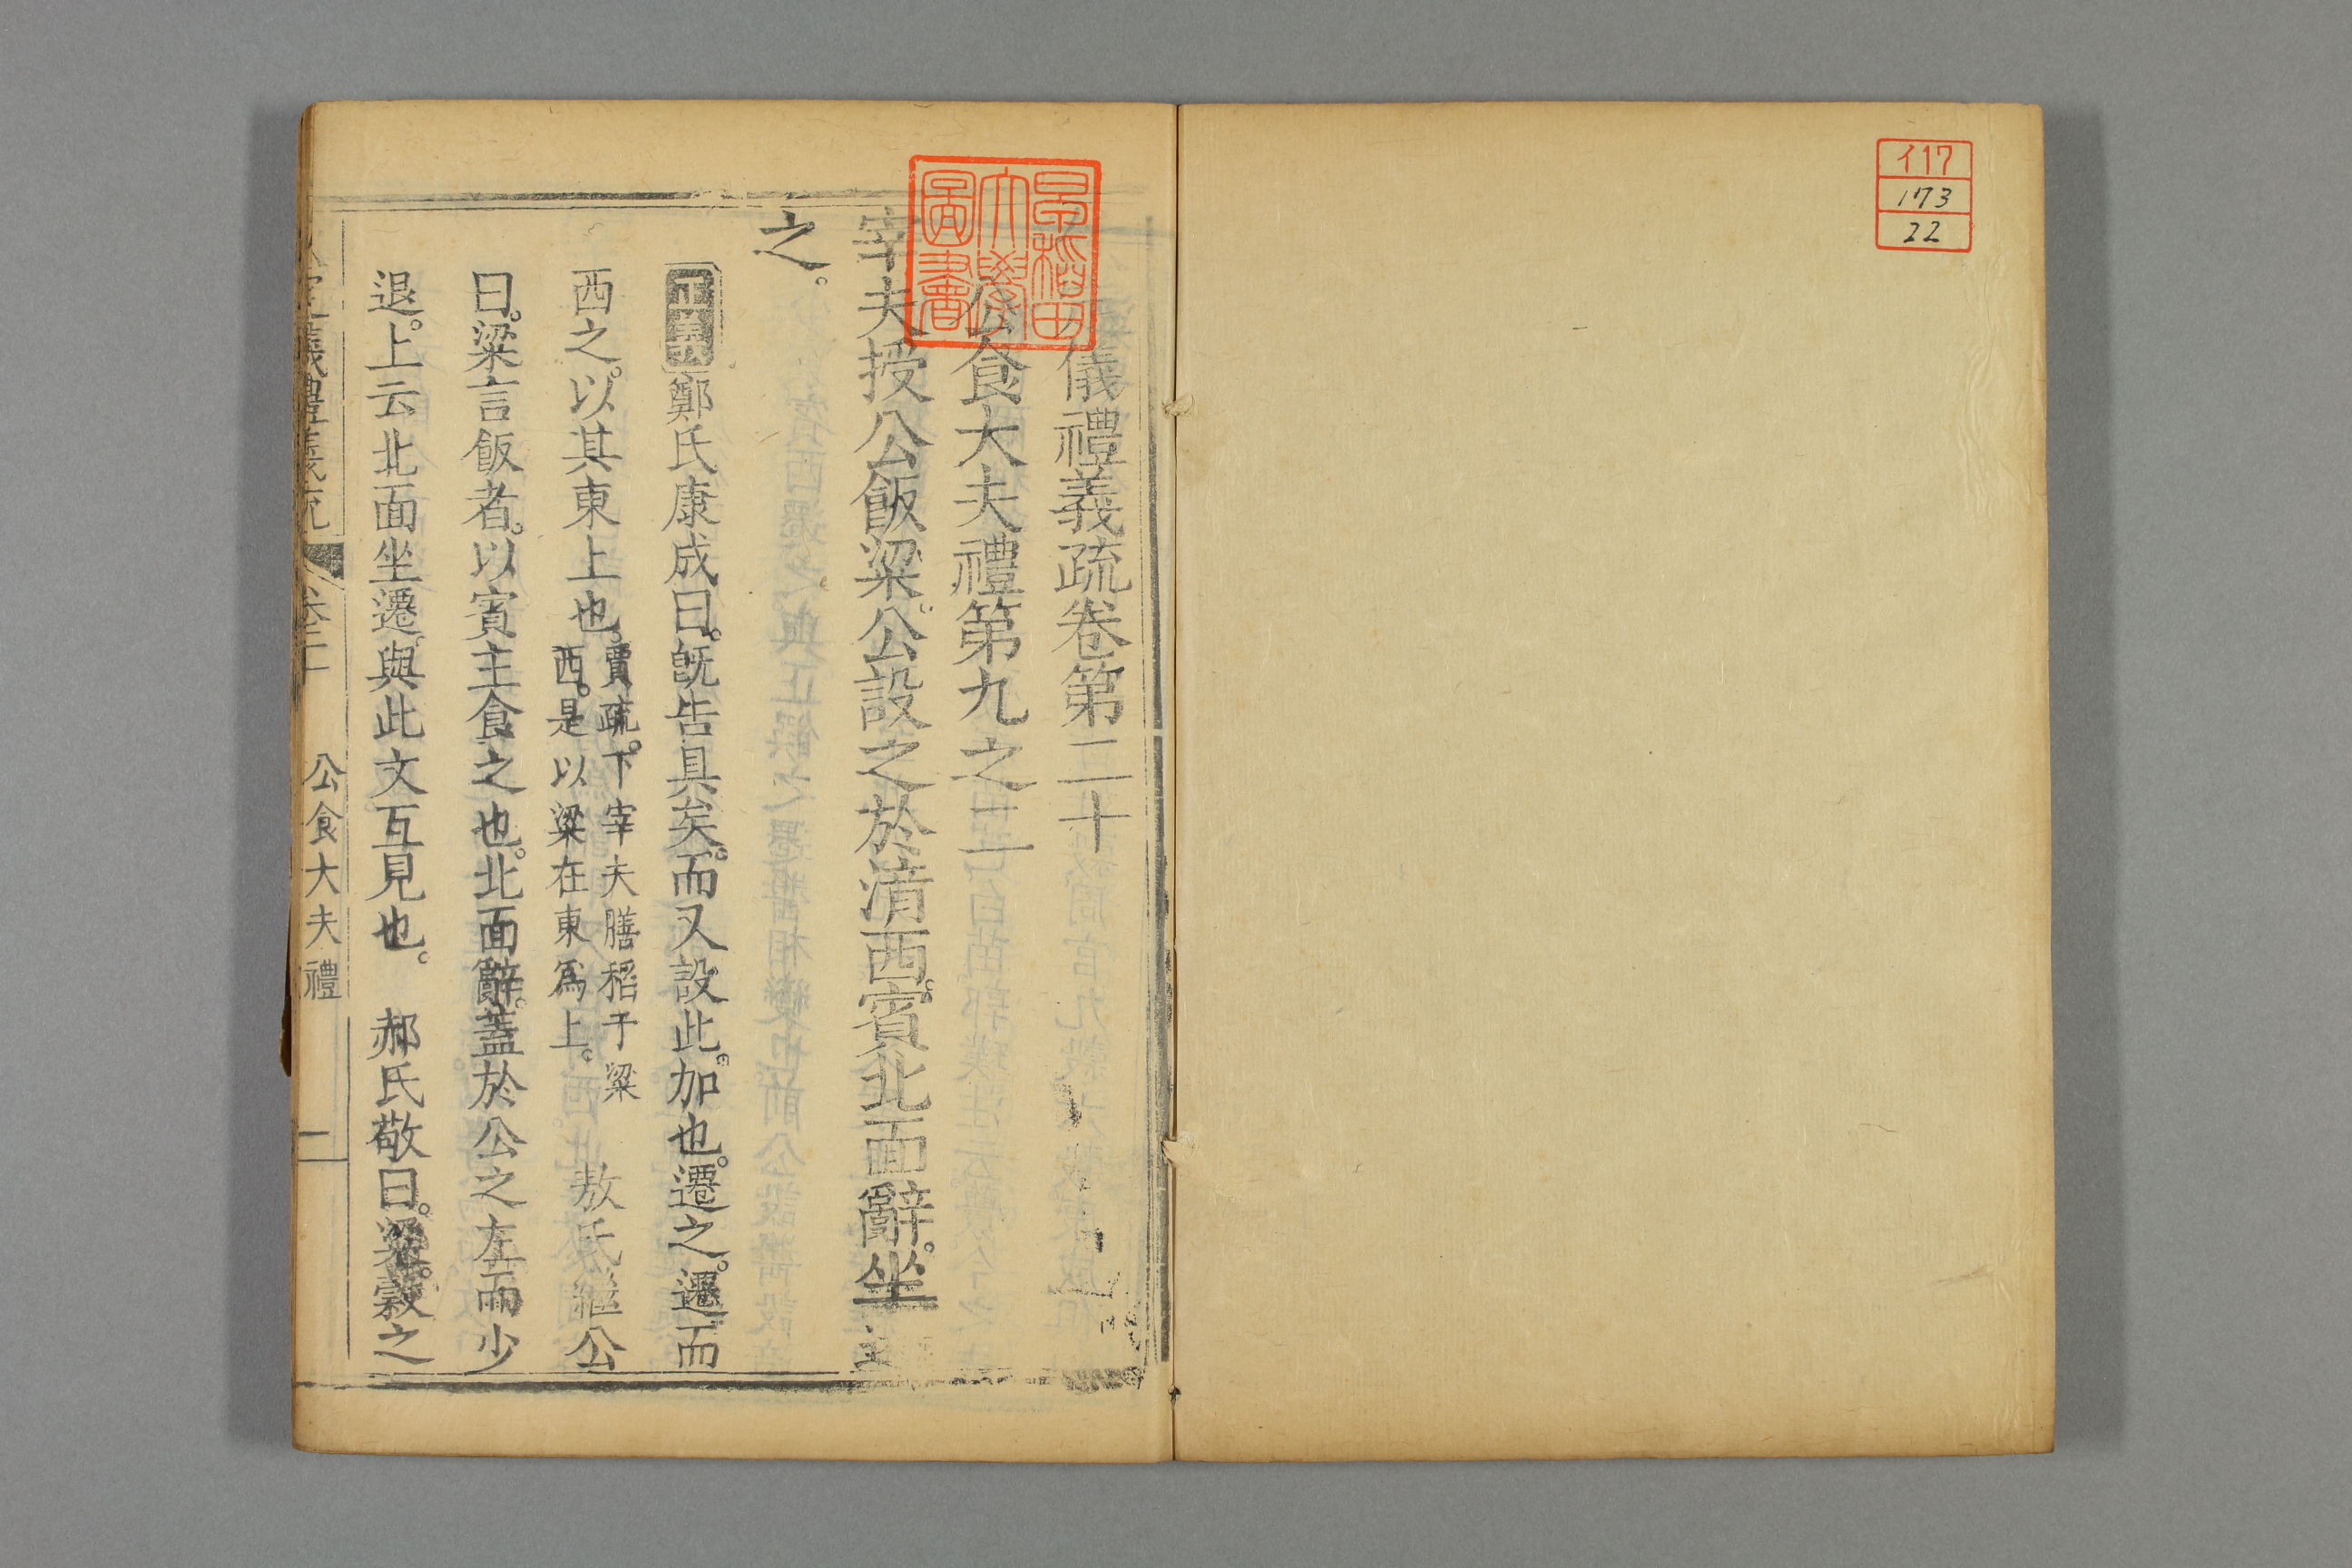 イ17
173
22
早稲田
大學
圖書
儀禮義疏卷第二十
公食大夫禮第九之二
宰夫授公飯粱。公設之於湆西。賓北面辭。坐
之。
正義鄭氏康成曰。旣告具矣。而又設此。加也。遷之。遷而
西之。以其東上也。賈疏。下宰夫膳稻于粱
西。是以粱在東爲上。敖氏繼公
曰。粱言飯者。以賓主食之也。北面辭。蓋於公之左而少
退。上云北面坐遷。與此文互見也。 郝氏敬曰。粱。穀之
儀禮義疏 卷二十 公食大夫禮 一